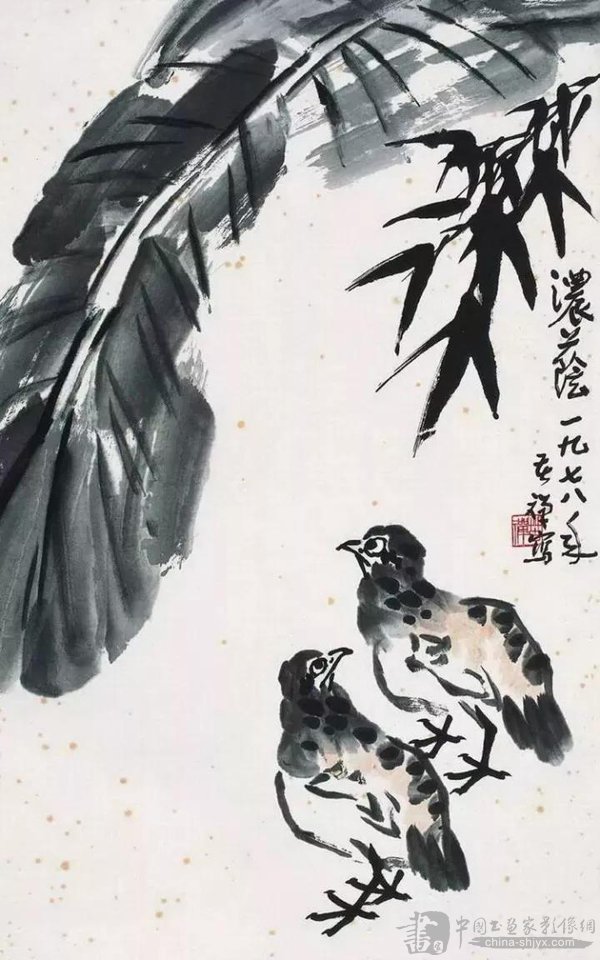 濃蔭一九七八年
苦禅寫
中國書畫家影像網
china-shjyx.com